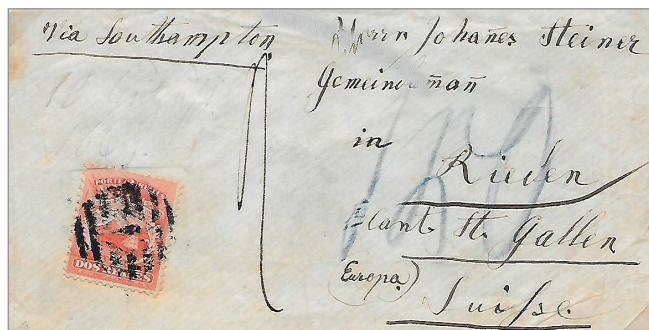 Via Southampton
Herrn Johañes Steiner
Gemeindmañ
in
Rieden
Cant. St. Gallen
(Europa)
Suisse.
DOS REALES